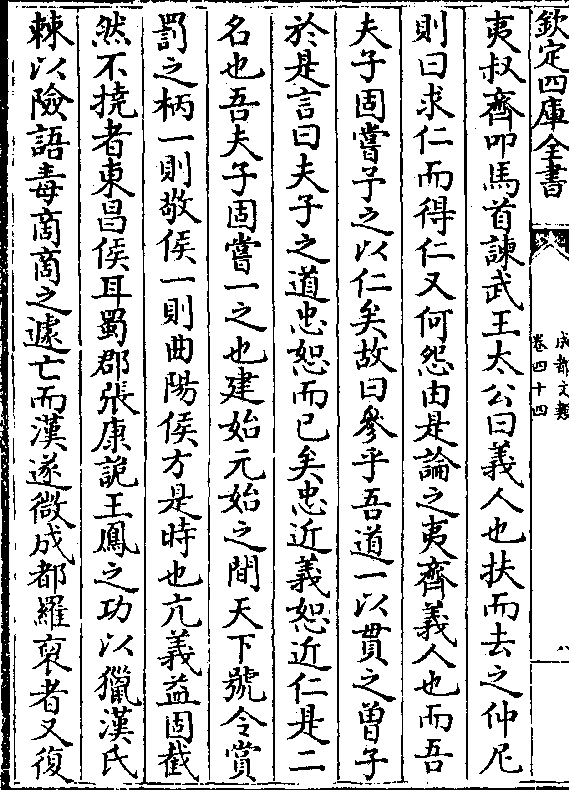 欽定四庫全書
成都文類
卷四十四
八
夷叔齊叩馬首諫武王太公曰義人也扶而去之仲尼
則曰求仁而得仁又何怨由是論之夷齊義人也而吾
夫子固嘗予之以仁矣故曰參乎吾道一以貫之曽子
於是言曰夫子之道忠恕而已矣忠近義恕近仁是二
名也吾夫子固嘗一之也建始元始之間天下號令賞
罰之柄一則敬侯一則曲陽侯方是時也亢義益固截
然不撓者東昌侯耳蜀郡張康説王鳳之功以獵漢氏
棘以險語毒商商之遽亡而漢遂微成都羅裒者又復